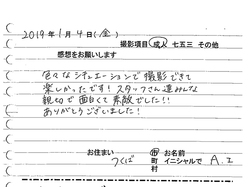 2019年1月4日(金)
撮影項目 成人 七五三 その他
感想をお願いします
色々なシチュエーションで撮影できて
楽しかったです！スタッフさん達みんな
親切で面白くて素敵でした！！
ありがとうございました！
お住まい つくば 市町村 お名前 イニシャルで A.I